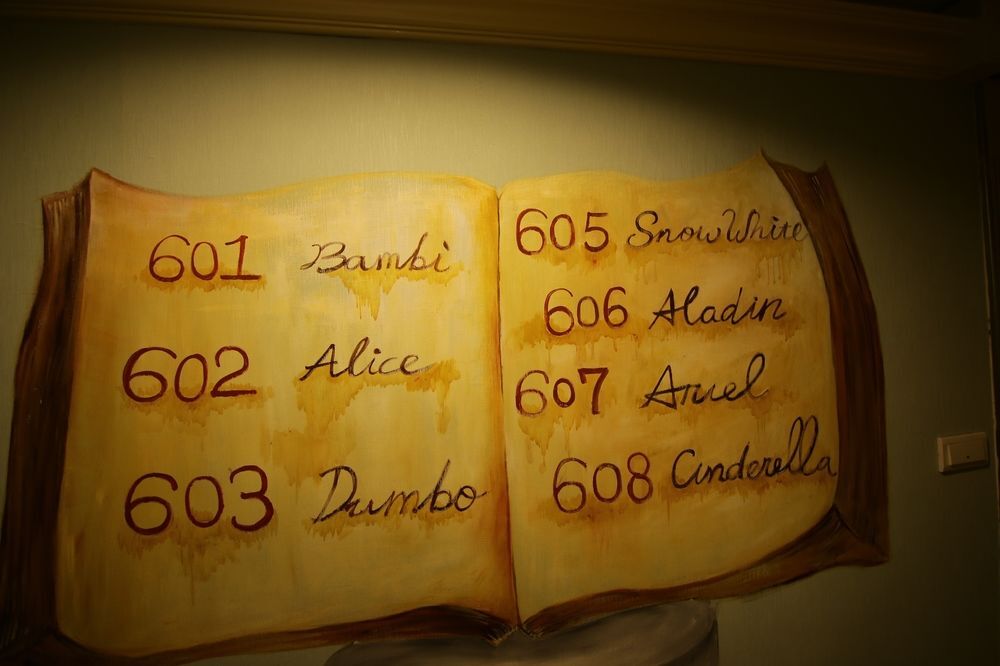 601 Bambi
602 Alice
603 Dumbo
605 Snow White
606 Aladin
607 Ariel
608 Cinderella